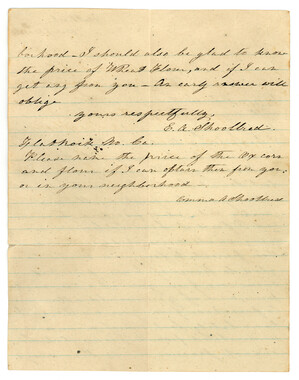 borhood - I should also be glad to know
the price of Wheat Flour, and if I can
get any from you - An early answer will
oblige
yours respectfully,
E. A. Shoolbred.
Please name the prices of the Ox corn
and flour if I can obtain them from you,
or in your neighborhood -
Emma A Shoolbred